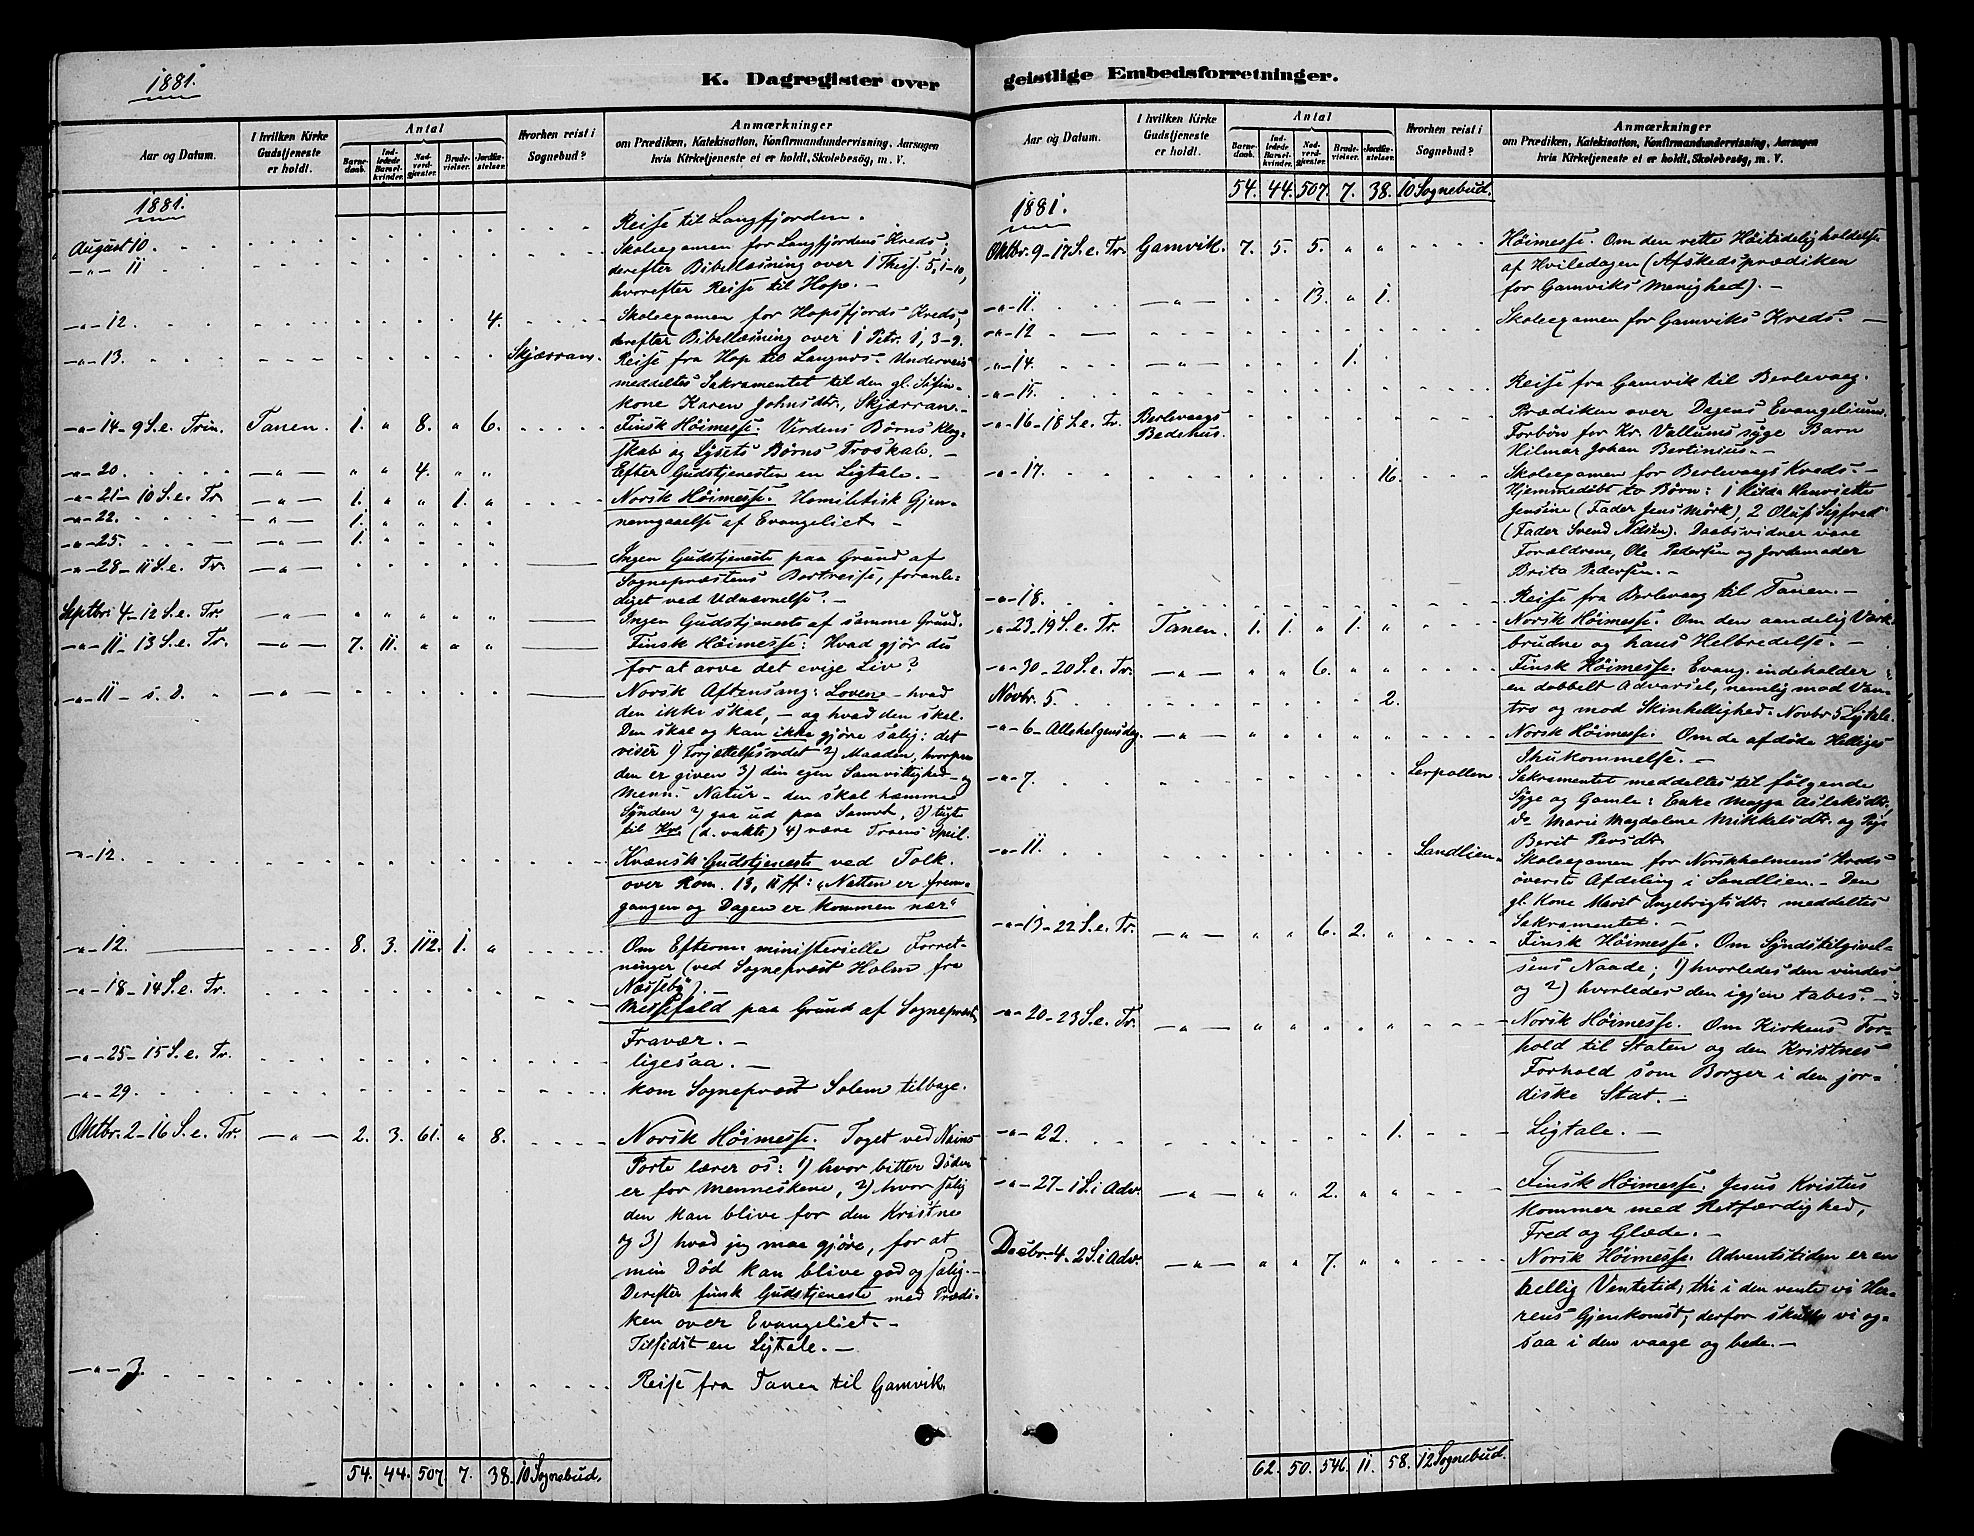 1881.
K. Dagregister over
Aar og Datum.
I hvilken Kirke Gudstjeneste er holdt.
Antal
Barne-daab.
Ind-ledede Barsel-kvinder.
Nad-verd-gjester.
Brude-vielser.
Jordfæ-stelser.
Hvorhen reist i Sognebud?
Anmærkninger
om Prædiken, Katekisation, Konfirmandundervisning, Aarsagen
hvis Kirketjeneste ei er holdt, Skolebesøg, m. V.
1881.
August 10. Reise til Langfjorden.
-"- 11 Skoleexamen for Langfjordens Kreds;
derefter Bibellæsning over 1 Thess. 5, 1-10,
hvorefter Reise til Hop. -
-"- 12. 4. Skoleexamen for Hopsfjords Kreds;
derefter Bibellæsning over 1 Petr. 1, 3-9.
-"- 13. Skjærran. Reise fra Hop til Langnes. Underveis
meddeltes Sakramentet til den gl. Sjøfin-
kone Karen Johnsdtr., Skjærran. -
-"- 14 - 9 S. e. Trin. Tanen. 1. " 8. " 6. Finsk Høimesse. Verdens Børns klog-
skab og Lysets Børns Troskab. -
-"- 20. -"- " " 4. " " Efter Gudstjenesten en Ligtale. -
-"- 21 - 10 S. e. Tr. -"- 1. " " 1. " Norsk Høimesse. Homiletisk Gjen-
-"- 22. -"- 1. " " " " nemgaaelse af Evangeliet. -
-"- 25. -"- 1. " " " "
-"- 28 - 11 S. e. Tr. -"- Ingen Gudstjeneste paa Grund af
Sognepræstens Bortreise, foranle-
diget ved Udnævnelse. -
Septbr. 4 - 12 S. e. Tr. -"- " " " " " Ingen Gudstjeneste af samme Grund.
-"- 11 - 13 S. e. Tr. -"- 7. 11. " " " Finsk Høimesse: Hvad gjør du
for at arve det evige Liv?
-"- 11 - s. d. -"- Norsk Aftensang: Loven - hvad
den ikke skal, - og hvad den skal.
Den skal og kan ikke gjøre salig: det
viser 1) Forjættelsesordet 2) Maaden, hvorpaa
den er given 3) din egen Samvittighed - og
Menn. Natur - den skal hæmme
Synden 2) gaa ud paa Samvt., 3) tugte
til Kr. (d. vakte) 4) være Troens Speil.
-"- 12. Kvænsk Gudstjeneste ved Tolk.
over Rom. 13, 11 ff: "Natten er frem-
gangen og Dagen er kommen nær"
-"- 12. 8. 3. 112. 1. " Om Efterm. ministerielle Forret-
ninger (ved Sognepræst Holm fra
Næsseby).
-"- 18 - 14 S. e. Tr. Messefald paa Grund af Sognepræst.
Fravær. -
-"- 25 - 15 S. e. Tr. ligesaa. -
-"- 29. kom Sognepræst Solem tilbage.
Oktbr. 2 - 16 S. e. Tr. -"- 2. 3. 61. " 8. Norsk Høimesse. Toget ved Nains
Porte lærer os: 1) hvor bitter Døden
er for Menneskene, 2) hvor salig
den kan blive for den Kristne
og 3) hvad jeg maa gjøre, for at
min Død kan blive god og salig. -
Derefter finsk Gudstjeneste med Prædi-
ken over Evangeliet. -
Tilsidst en Ligtale. -
-"- 3. Reise fra Tanen til Gamvik.
54. 44. 507. 7. 38. 10 Sognebud.
geistlige Embedsforretninger.
Aar og Datum.
I hvilken Kirke Gudstjeneste er holdt.
Antal
Barne-daab.
Ind-ledede Barsel-kvinder.
Nad-verd-gjester.
Brude-vielser.
Jordfæ-stelser.
Hvorhen reist i Sognebud?
Anmærkninger
om Prædiken, Katekisation, Konfirmandundervisning, Aarsagen
hvis Kirketjeneste ei er holdt, Skolebesøg, m. V.
54. 44. 507. 7. 38. 10 Sognebud.
1881.
Oktbr. 9 - 17 S. e. Tr. Gamvik. 7. 5. 5. " " Høimesse. Om den rette Høitideligholdelse
af Hviledagen (Afskedsprædiken
for Gamviks Menighed). -
-"- 11. -"- 13. " 1.
-"- 12 Skoleexamen for Gamviks Kreds. -
-"- 14. -"- 1.
-"- 15. Reise fra Gamvik til Berlevaag.
-"- 16 - 18 S. e. Tr. Berlevaags Bedehus. Prædiken over Dagens Evangelium.
Forbøn for Kr. Vallums syge Barn
Hilmar Johan Bertinius. -
-"- 17. 16. Skoleexamen for Berlevaags Kreds. -
Hjemmedøbt to Børn: 1 Hilda Henriette
Jensine (Fader Jens Mørk), 2 Oluf Sigfred
(Fader Svend Nilsen). Daabsvidner vare
Forældrene, Ole Pedersen og Jordemoder
Brita Pedersen. -
-"- 18. Reise fra Berlevaag til Tanen. -
-"- 23 - 19 S. e. Tr. Tanen. 1. 1. " 1. " Norsk Høimesse. Om den aandelig Værk-
brudne og hans Helbredelse. -
-"- 30 - 20 S. e. Tr. -"- " " 6. " " Finsk Høimesse. Evang. indeholder
en dobbelt Advarsel, nemlig mod Van-
Novbr. 5. 2. tro og mod Skinhellighed. Novbr 5 Ligtale.
-"- 6 - Allehelgensdag. -"- Norsk Høimesse. Om de afdøde Helliges
Ihukommelse. -
-"- 7. Lerpollen. Sakramentet meddeltes til følgende
Syge og Gamle: Enke Magga Aslaksdtr.,
do Marie Magdalene Mikkelsdtr. og Pige
Berit Persdtr.
-"- 11. Sandlien. Skoleexamen for Norskholmens Kreds
øverste Afdeling i Sandlien. - Den
gl. Kone Marit Ingebrigtsdtr. meddeltes
Sakramentet. -
-"- 13 - 22 S. e. Tr. -"- " " 6. 2. " Finsk Høimesse. Om Syndstilgivel-
sens Naade; 1) hvorledes den vindes
og 2) hvorledes den igjen tabes. -
-"- 20 - 23 S. e. Tr. -"- " " " " " Norsk Høimesse. Om Kirkens For-
hold til Staten og den Kristnes
Forhold som Borger i den jor-
diske Stat. -
-"- 22. 1. Ligtale. -
-"- 27 - 1 S. i Adv. -"- " " 2. " " Finsk Høimesse. Jesus Kristus
kommer med Retfærdighed,
Fred og Glæde. -
Decbr. 4 - 2 S. i Adv. -"- " " 7. " " Norsk Høimesse. Adventstiden er en
hellig Ventetid; thi i den vente vi Her-
rens Gjenkomst; derfor skulle vi og-
saa i den vaage og bede. -
62. 50. 546. 11. 58. 12 Sognebud.